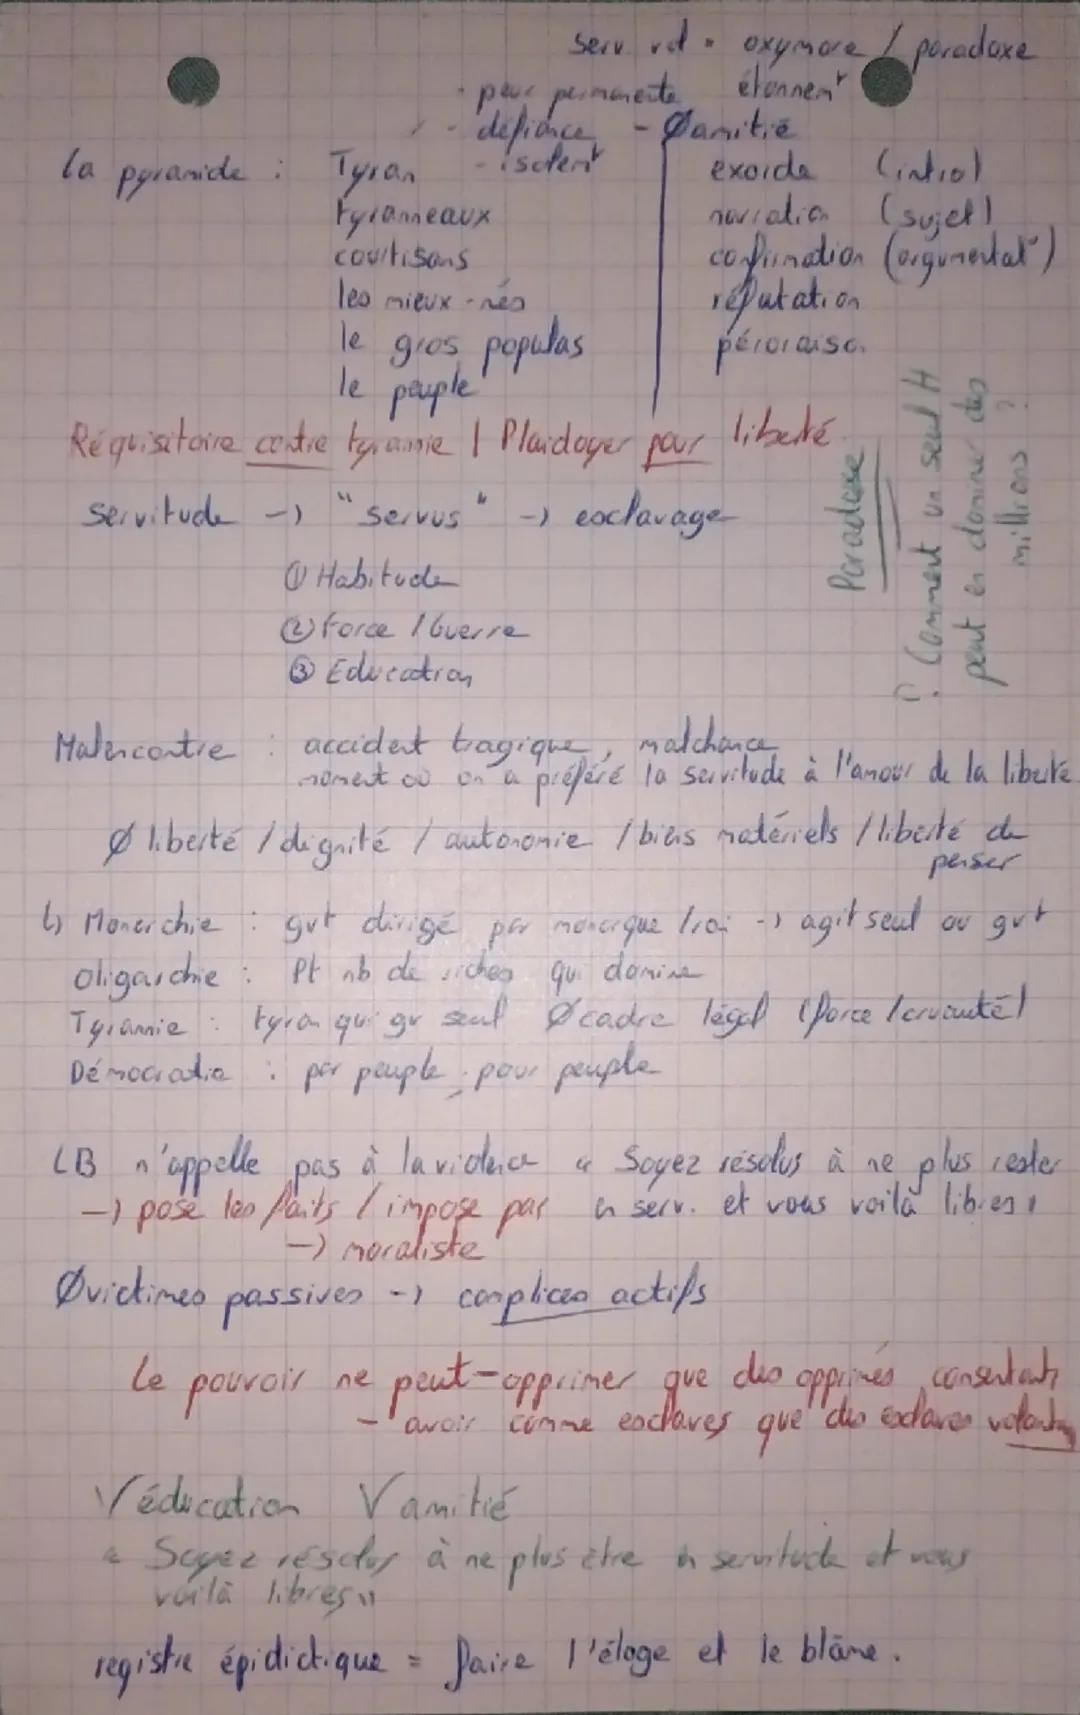 serv. vol = oxymore / paradoxe
étonnem^t
- peur permanente
- défiance - Ø amitié
- isolem^t
la pyramide : Tyran
tyranneaux
courtisans
les mieux-nés
le gros populas
le peuple
exorde (intro)
narration (sujet)
confirmation (argumentat°)
réfutation
péroraison
Réquisitoire contre tyrannie | Plaidoyer pour liberté
servitude -> "servus" -> esclavage
① Habitude
② Force / Guerre
③ Education
Paradoxe
? Comment un seul H
peut en dominer des
millions ?
Malencontre : accident tragique, malchance
moment où on a préféré la servitude à l'amour de la liberté
Ø liberté / dignité / autonomie / biens matériels / liberté de
penser
↳ Monarchie : gvt dirigé par monarque / roi -> agit seul ou gvt
Oligarchie : Pt nb de riches qui domine
Tyrannie : tyran qui gv seul Ø cadre légal (force / cruauté)
Démocratie : par peuple, pour peuple
LB n'appelle pas à la violence « Soyez résolus à ne plus rester
en serv. et vous voilà libres »
-> pose les faits / impose pas
-> moraliste
Ø victimes passives -> complices actifs
Le pouvoir ne peut - opprimer que des opprimés consentants
- avoir comme esclaves que des esclaves volontaires
V éducation V amitié
« Soyez résolus à ne plus être en servitude et vous
voilà libres »
registre épidictique = faire l'éloge et le blâme.